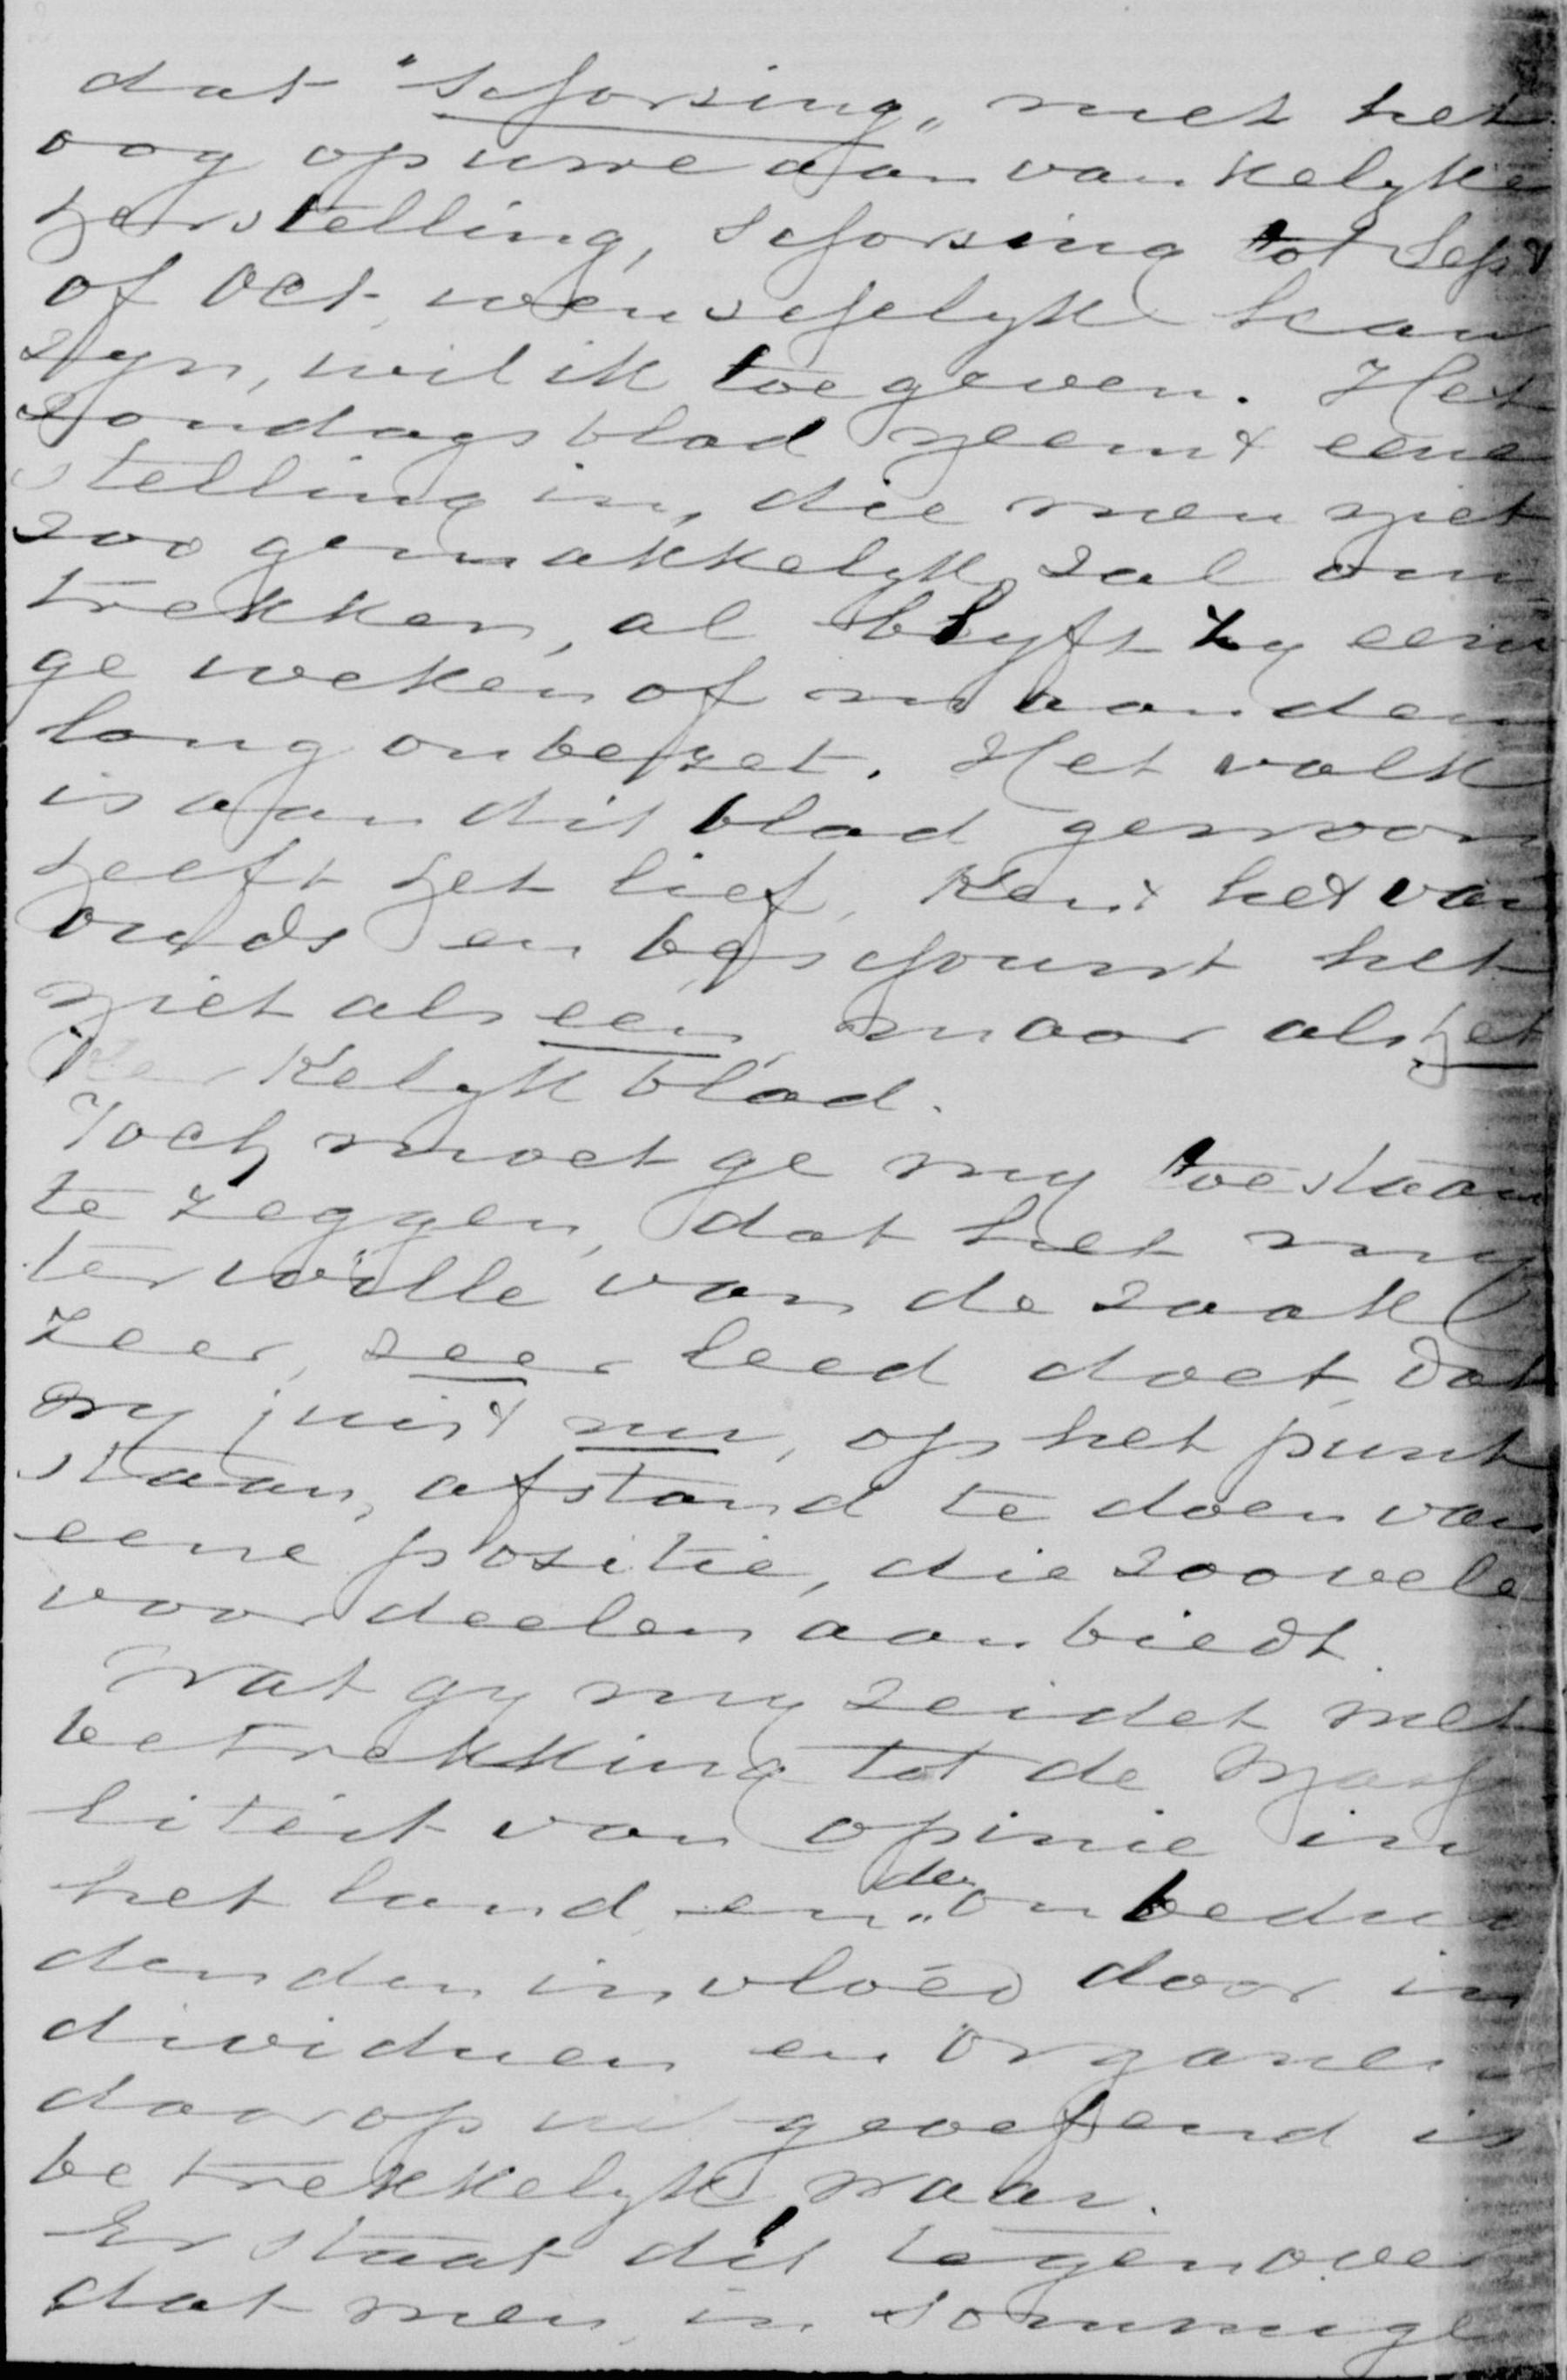 dat "schorsing" met het
oog op uwe aanvankelyke
herstelling, schorsing tot Sept
of Oct. wenschelyk kan
zyn, wil ik toegeven. Het
Zondagsblad neemt eene
stelling in, die men niet
zoo gemakkelyk zal om
trekken, al blyft zy eeni
ge weken of maanden
lang onbezet. Het volk
is aan dit blad gewoon
heeft het lief, kent het van
ouds en beschouwt het
niet als een, maar als het
Kerkelyk blad.
Toch moet ge my toestaan
te zeggen, dat het my
ter wille van de zaak
zeer, zeer leed doet, dat
wy juist nu, op het punt
staan, afstand te doen van
eene positie, die zoovele
voordeelen aanbiedt.
Wat gy my zeidet met
betrekking tot de
liteit van opinie in
het land, en den onbedui
denden invloed door in
dividuen en organen
daarop uitgeoefend is
betrekkelyk waar.
Er staat dit tegenover
dat men, in sommige